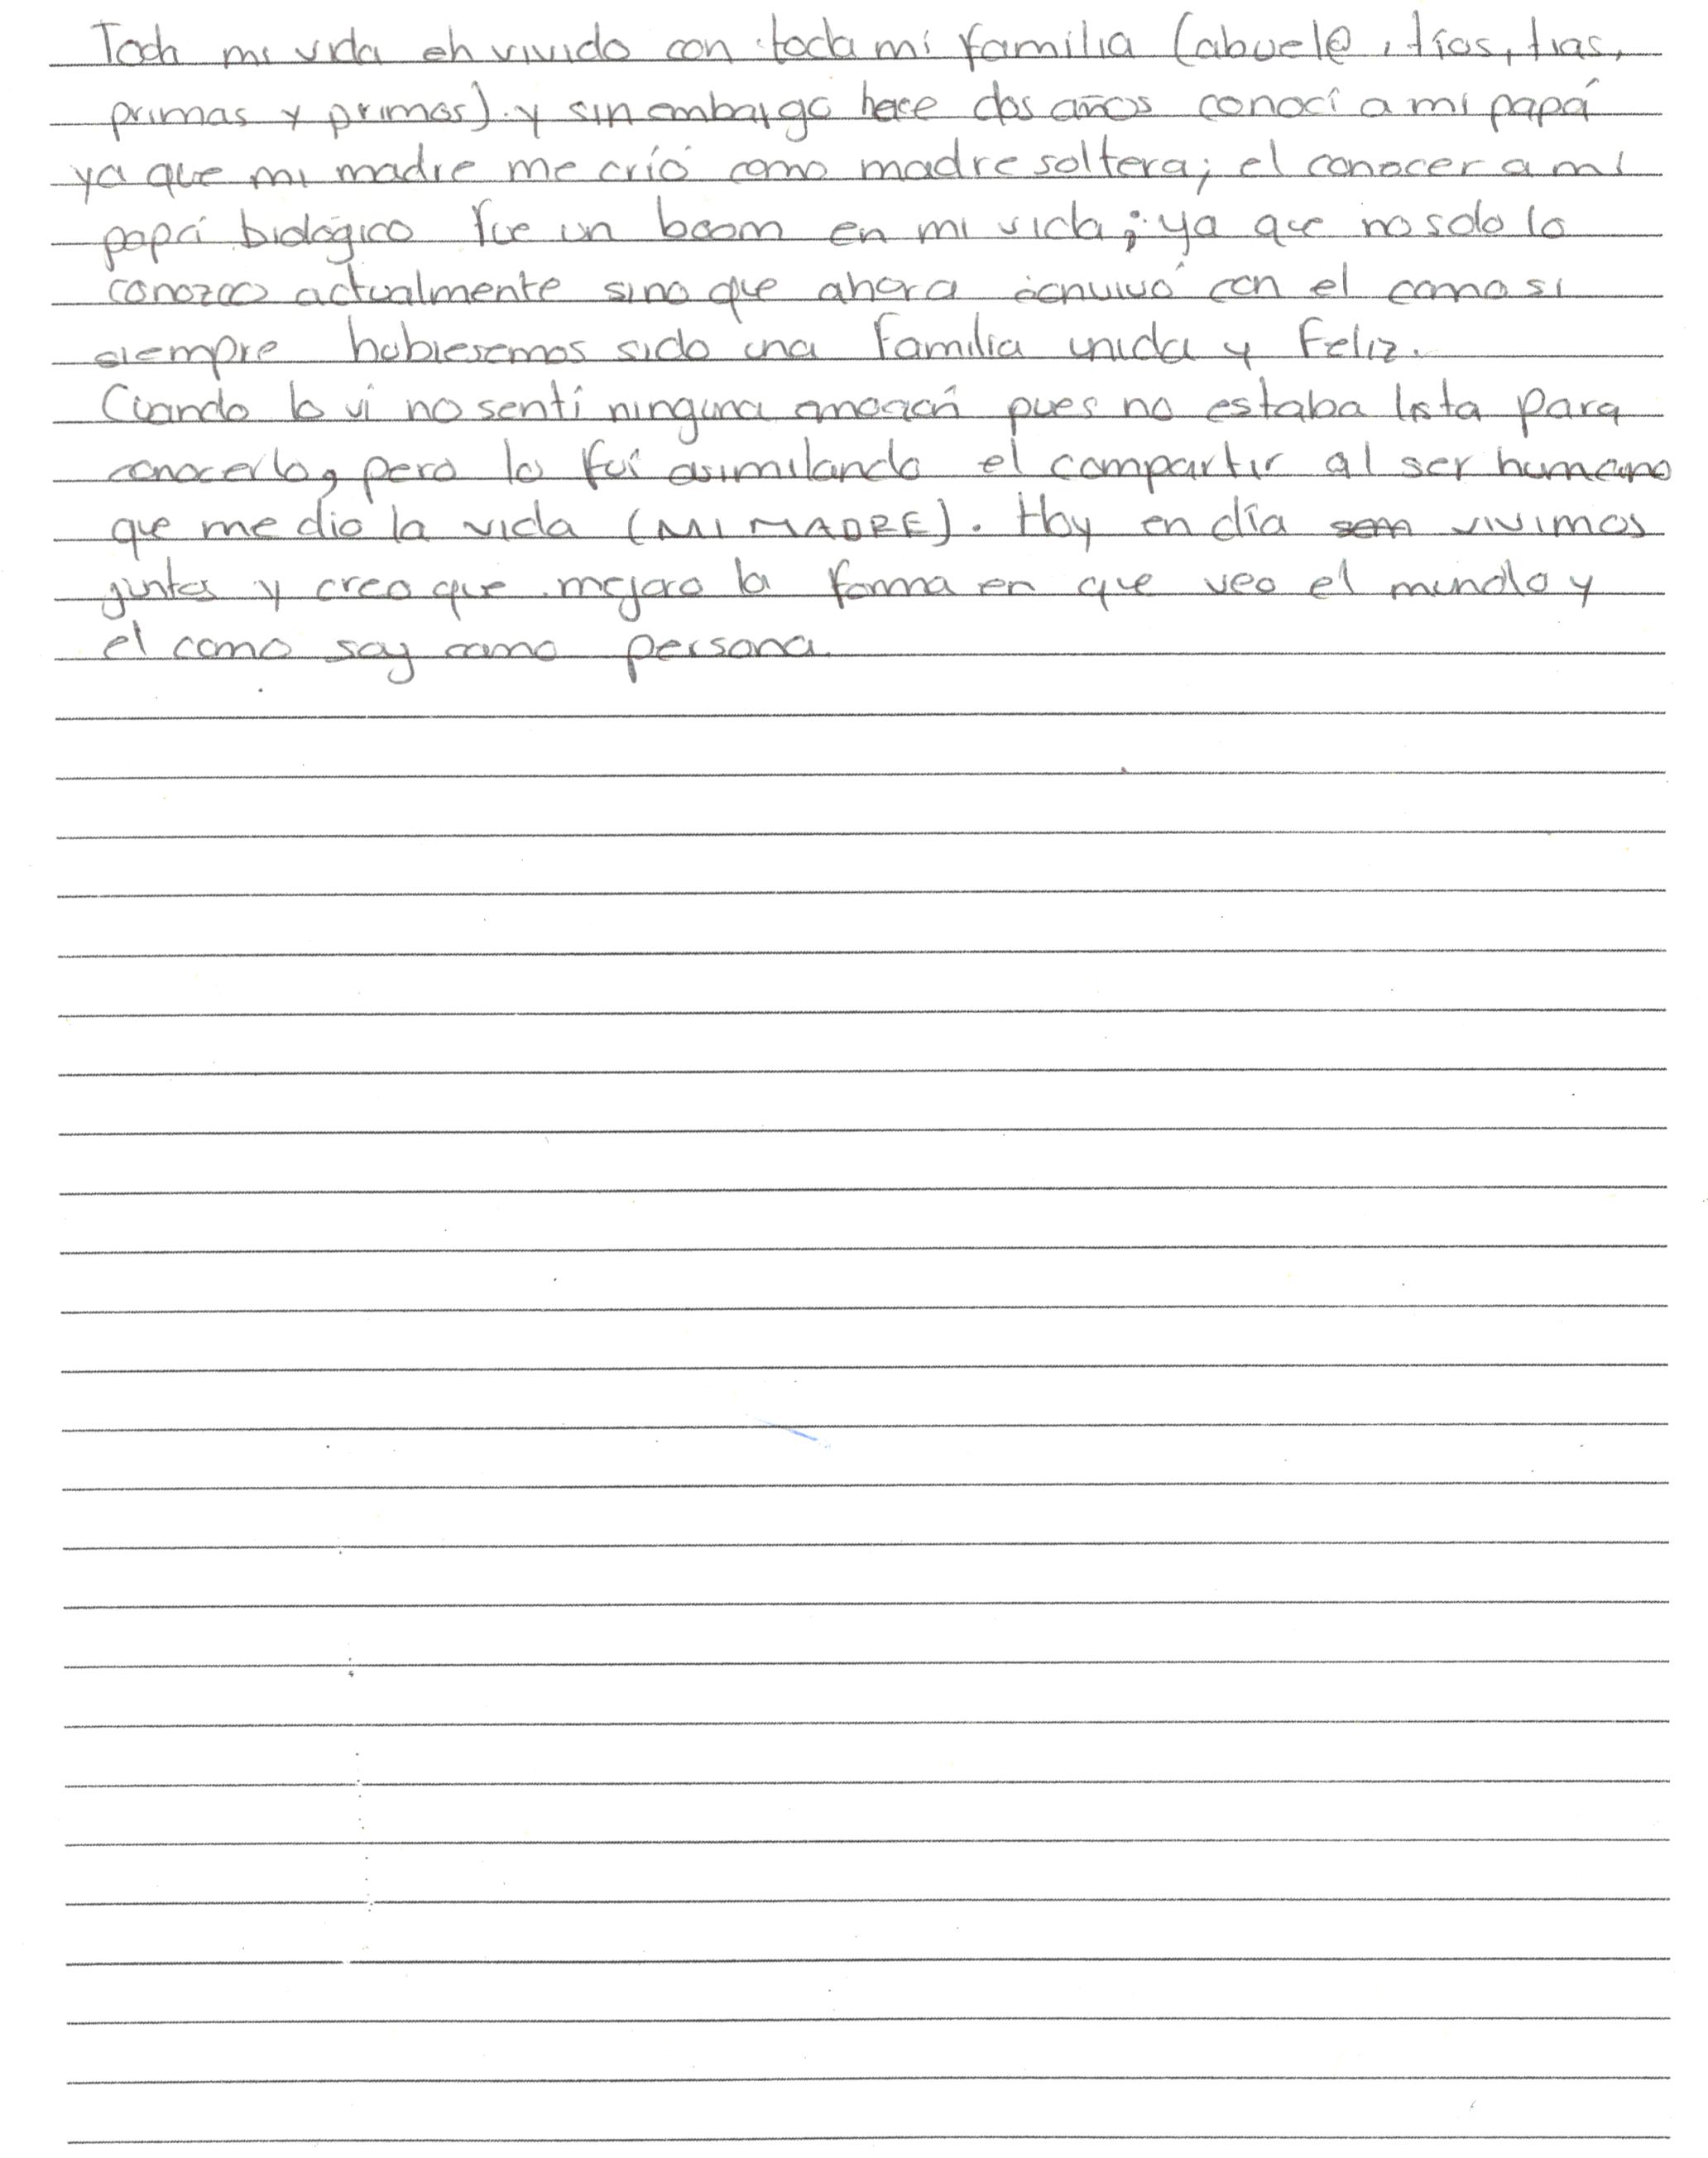 Toda mi vida eh vivido con toda mi familia (abuel@, tíos, tias,
primas y primos). y sin embargo hace dos años conocí a mi papá
ya que mi madre me crió como madre soltera; el conocer a mi
papá biológico fue un boom en mi vida; ya que no solo lo
conozco actualmente sino que ahora convivo con el como si
siempre hubiesemos sido una familia unida y feliz.
Cuando lo vi no sentí ninguna emoción pues no estaba lista para
conocerlo, pero lo fui asimilando el compartir al ser humano
que me dio la vida (MI MADRE). Hoy en día vivimos
juntos y creo que mejoro la forma en que veo el mundo y
el como soy como persona.